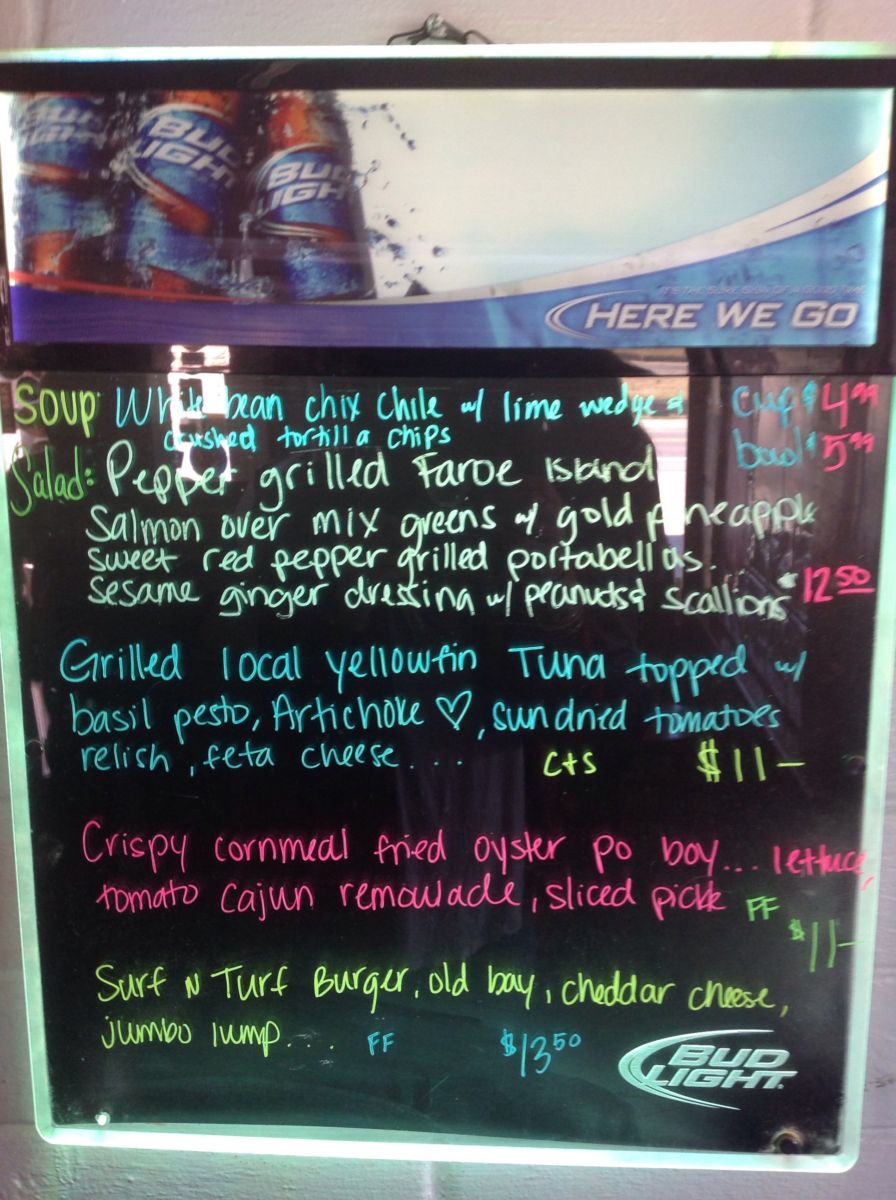 BUD LIGHT
BUD LIGHT
BUD LIGHT
HERE WE GO
SOUP: White bean chix chile w/ lime wedge & cup $4.99
crushed tortilla chips bowl $5.99
Salad: Pepper grilled Faroe Island
Salmon over mix greens w/ gold pineapple
sweet red pepper grilled portabellas.
sesame ginger dressing w/ peanuts & scallions $12.50
Grilled local yellowfin Tuna topped w/
basil pesto, Artichoke ♡, sundried tomatoes
relish, feta cheese... cts $11-
Crispy cornmeal fried oyster po boy... lettuce,
tomato cajun remoulade, sliced pickle FF
$11-
Surf N Turf Burger, old bay, cheddar cheese,
jumbo lump... FF $13.50
BUD LIGHT